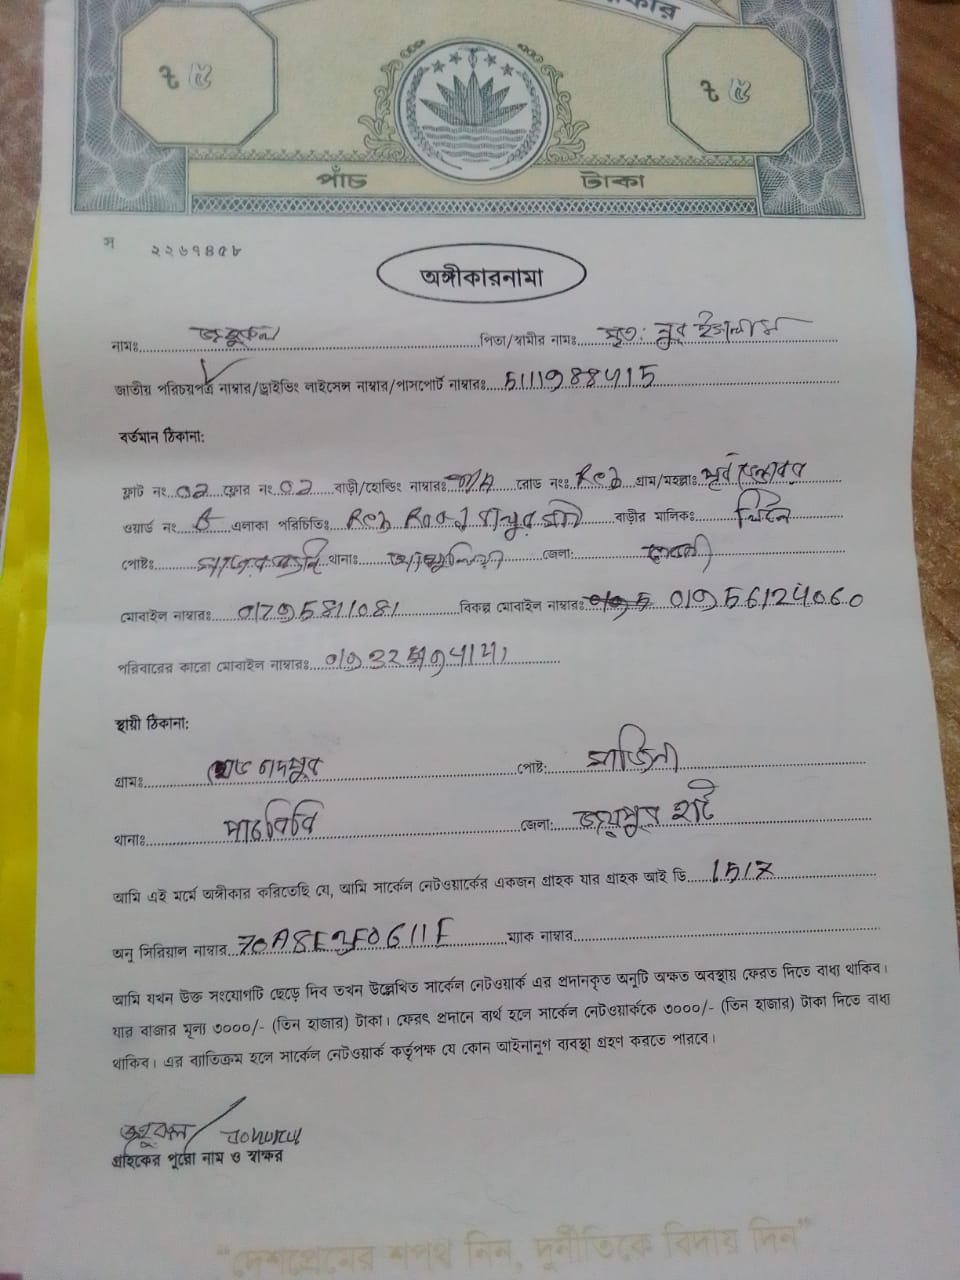 ৳ ৫ ৳ ৫
পাঁচ টাকা
স ২২৬৭৪৫৮
অঙ্গীকারনামা
নামঃ জহুরুল পিতা/স্বামীর নামঃ মৃত: নুর ইসলাম
জাতীয় পরিচয়পত্র নাম্বার/ড্রাইভিং লাইসেন্স নাম্বার/পাসপোর্ট নাম্বারঃ 5111988415
বর্তমান ঠিকানা:
ফ্লাট নং 02 ফ্লোর নং 02 বাড়ী/হোল্ডিং নাম্বারঃ N/A রোড নংঃ Reb গ্রাম/মহল্লাঃ পূর্ব
ওয়ার্ড নং এলাকা পরিচিতিঃ Reb Road বাড়ীর মালিকঃ
পোষ্টঃ থানাঃ জেলা:
মোবাইল নাম্বারঃ 01795811081 বিকল্প মোবাইল নাম্বারঃ 01956124060
পরিবারের কারো মোবাইল নাম্বারঃ
স্থায়ী ঠিকানা:
গ্রামঃ পোষ্ট:
থানাঃ পাচবিবি জেলা: জয়পুর হাট
আমি এই মর্মে অঙ্গীকার করিতেছি যে, আমি সার্কেল নেটওয়ার্কের একজন গ্রাহক যার গ্রাহক আই ডি 1517
অনু সিরিয়াল নাম্বার 70A8E3F0611E ম্যাক নাম্বার
আমি যখন উক্ত সংযোগটি ছেড়ে দিব তখন উল্লেখিত সার্কেল নেটওয়ার্ক এর প্রদানকৃত অনুটি অক্ষত অবস্থায় ফেরত দিতে বাধ্য থাকিব।
যার বাজার মূল্য ৩০০০/- (তিন হাজার) টাকা। ফেরৎ প্রদানে ব্যর্থ হলে সার্কেল নেটওয়ার্ককে ৩০০০/- (তিন হাজার) টাকা দিতে বাধ্য
থাকিব। এর ব্যাতিক্রম হলে সার্কেল নেটওয়ার্ক কর্তৃপক্ষ যে কোন আইনানুগ ব্যবস্থা গ্রহণ করতে পারবে।
জহুরুল / Johurul
গ্রাহকের পুরো নাম ও স্বাক্ষর
“দেশপ্রেমের শপথ নিন, দুর্নীতিকে বিদায় দিন”